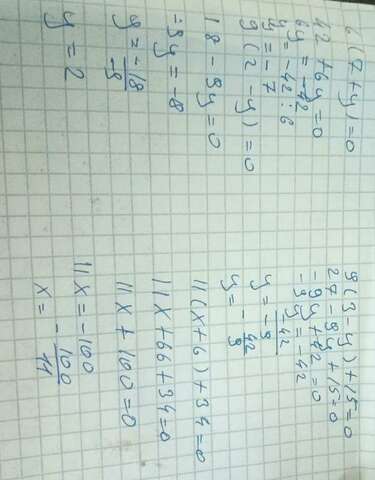 6(7+y)=0
42+6y=0
6y=-42
y=-42:6
y=-7
9(2-y)=0
18-9y=0
-9y=-8
y=-18/-9
y=2
9(3-y)+15=0
27-9y+15=0
-9y+42=0
-9y=-42
y=-42/-9
y=-42/9
11(x+6)+34=0
11x+66+34=0
11x+100=0
11x=-100
x=-100/11